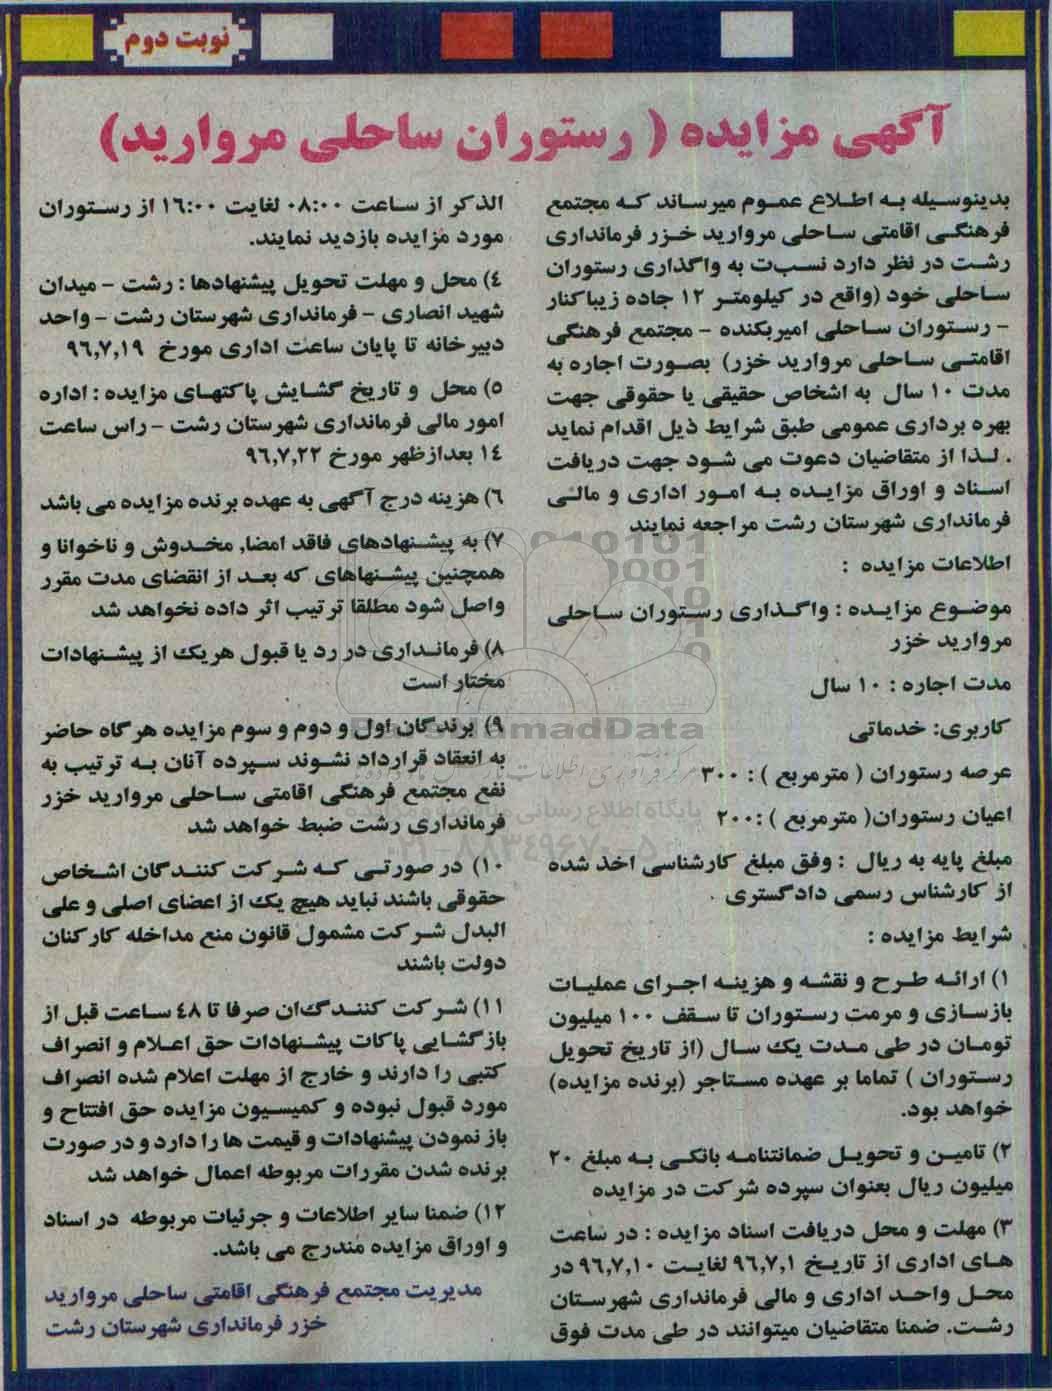 نوبت دوم
آگهی مزایده ( رستوران ساحلی مروارید)
بدینوسیله به اطلاع عموم میرساند که مجتمع
فرهنگی اقامتی ساحلی مروارید خزر فرمانداری
رشت در نظر دارد نسبت به واگذاری رستوران
ساحلی خود (واقع در کیلومتر ۱۲ جاده زیباکنار
- رستوران ساحلی امیربکنده - مجتمع فرهنگی
اقامتی ساحلی مروارید خزر) بصورت اجاره به
مدت ۱۰ سال به اشخاص حقیقی یا حقوقی جهت
بهره برداری عمومی طبق شرایط ذیل اقدام نماید
. لذا از متقاضیان دعوت می شود جهت دریافت
اسناد و اوراق مزایده به امور اداری و مالی
فرمانداری شهرستان رشت مراجعه نمایند
اطلاعات مزایده :
موضوع مزایده : واگذاری رستوران ساحلی
مروارید خزر
مدت اجاره : ۱۰ سال
کاربری: خدماتی
عرصه رستوران ( مترمربع ) : ۳۰۰
اعیان رستوران( مترمربع ) :۲۰۰
مبلغ پایه به ریال : وفق مبلغ کارشناسی اخذ شده
از کارشناس رسمی دادگستری .
شرایط مزایده :
۱) ارائه طرح و نقشه و هزینه اجرای عملیات
بازسازی و مرمت رستوران تا سقف ۱۰۰ میلیون
تومان در طی مدت یک سال (از تاریخ تحویل
رستوران ) تماما بر عهده مستاجر (برنده مزایده)
خواهد بود.
۲) تامین و تحویل ضمانتنامه بانکی به مبلغ ۲۰
میلیون ریال بعنوان سپرده شرکت در مزایده
۳) مهلت و محل دریافت اسناد مزایده : در ساعت
های اداری از تاریخ ۹۶,۷,۱ لغایت ۹۶,۷,۱۰ در
محل واحد اداری و مالی فرمانداری شهرستان
رشت. ضمنا متقاضیان میتوانند در طی مدت فوق
الذکر از ساعت ۰۸:۰۰ لغایت ۱۶:۰۰ از رستوران
مورد مزایده بازدید نمایند.
۴) محل و مهلت تحویل پیشنهادها : رشت - میدان
شهید انصاری - فرمانداری شهرستان رشت - واحد
دبیرخانه تا پایان ساعت اداری مورخ ۹۶,۷,۱۹
۵) محل و تاریخ گشایش پاکتهای مزایده : اداره
امور مالی فرمانداری شهرستان رشت - راس ساعت
۱۴ بعدازظهر مورخ ۹۶,۷,۲۲
۶) هزینه درج آگهی به عهده برنده مزایده می باشد
۷) به پیشنهادهای فاقد امضا, مخدوش و ناخوانا و
همچنین پیشنهاهای که بعد از انقضای مدت مقرر
واصل شود مطلقا ترتیب اثر داده نخواهد شد
۸) فرمانداری در رد یا قبول هریک از پیشنهادات
مختار است
۹) برندگان اول و دوم و سوم مزایده هرگاه حاضر
به انعقاد قرارداد نشوند سپرده آنان به ترتیب به
نفع مجتمع فرهنگی اقامتی ساحلی مروارید خزر
فرمانداری رشت ضبط خواهد شد
۱۰) در صورتی که شرکت کنندگان اشخاص
حقوقی باشند نباید هیچ یک از اعضای اصلی و علی
البدل شرکت مشمول قانون منع مداخله کارکنان
دولت باشند
۱۱) شرکت کنندگان صرفا تا ۴۸ ساعت قبل از
بازگشایی پاکات پیشنهادات حق اعلام و انصراف
کتبی را دارند و خارج از مهلت اعلام شده انصراف
مورد قبول نبوده و کمیسیون مزایده حق افتتاح و
باز نمودن پیشنهادات و قیمت ها را دارد و در صورت
برنده شدن مقررات مربوطه اعمال خواهد شد
۱۲) ضمنا سایر اطلاعات و جرئیات مربوطه در اسناد
و اوراق مزایده مندرج می باشد.
مدیریت مجتمع فرهنگی اقامتی ساحلی مروارید
خزر فرمانداری شهرستان رشت